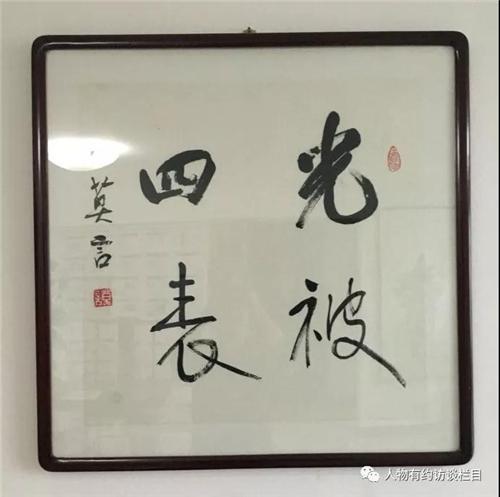 光被
四表
莫言
人物有约访谈栏目